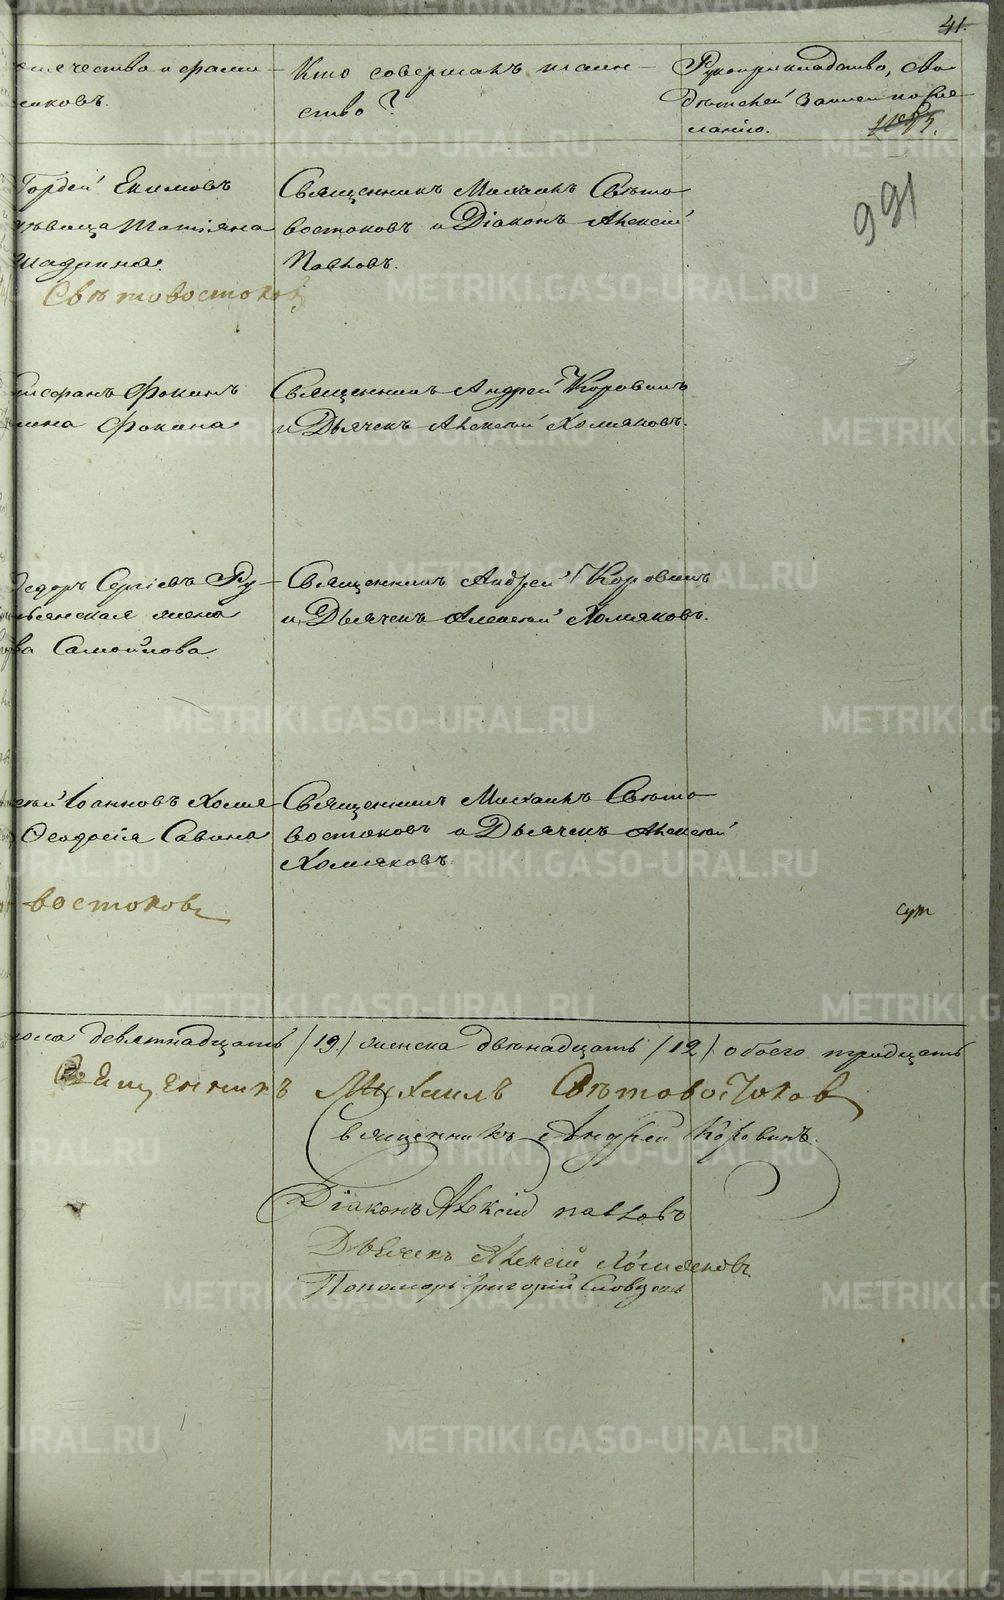 41.
отчество и фами-
ликовъ.
Кто совершалъ таин-
ство?
Рукоприкладство, сви-
дѣтелей записи по же-
ланію.
991
Гордей Екимовъ
дѣвица Татіяна
Шадрина.
Свѣтовостоков
Священникъ Михаилъ Свѣто-
востоковъ и Діаконъ Алексѣй
Павловъ.
Фокинъ
Фокина
Священникъ Андрей Коровинъ
и Дьячекъ Алексѣй Холмяковъ.
Федоръ Сергіевъ Ру-
жена
Самойлова.
Священникъ Андрей Коровинъ
и Дьячекъ Алексѣй Холмяковъ.
Іоанновъ Холмя-
Савина
востоков
Священникъ Михаилъ Свѣто-
востоковъ и Дьячекъ Алексѣй
Холмяковъ.
пола девятнадцать /19/ женска двѣнадцать /12/ обоего тридцать
Священникъ Михаилъ Свѣтовостоков
Священникъ Андрей Коровинъ.
Діаконъ Алексій Павловъ
Дьячекъ Алексѣй Холмяковъ
Пономарь Григорій Словцовъ
METRIKI.GASO-URAL.RU